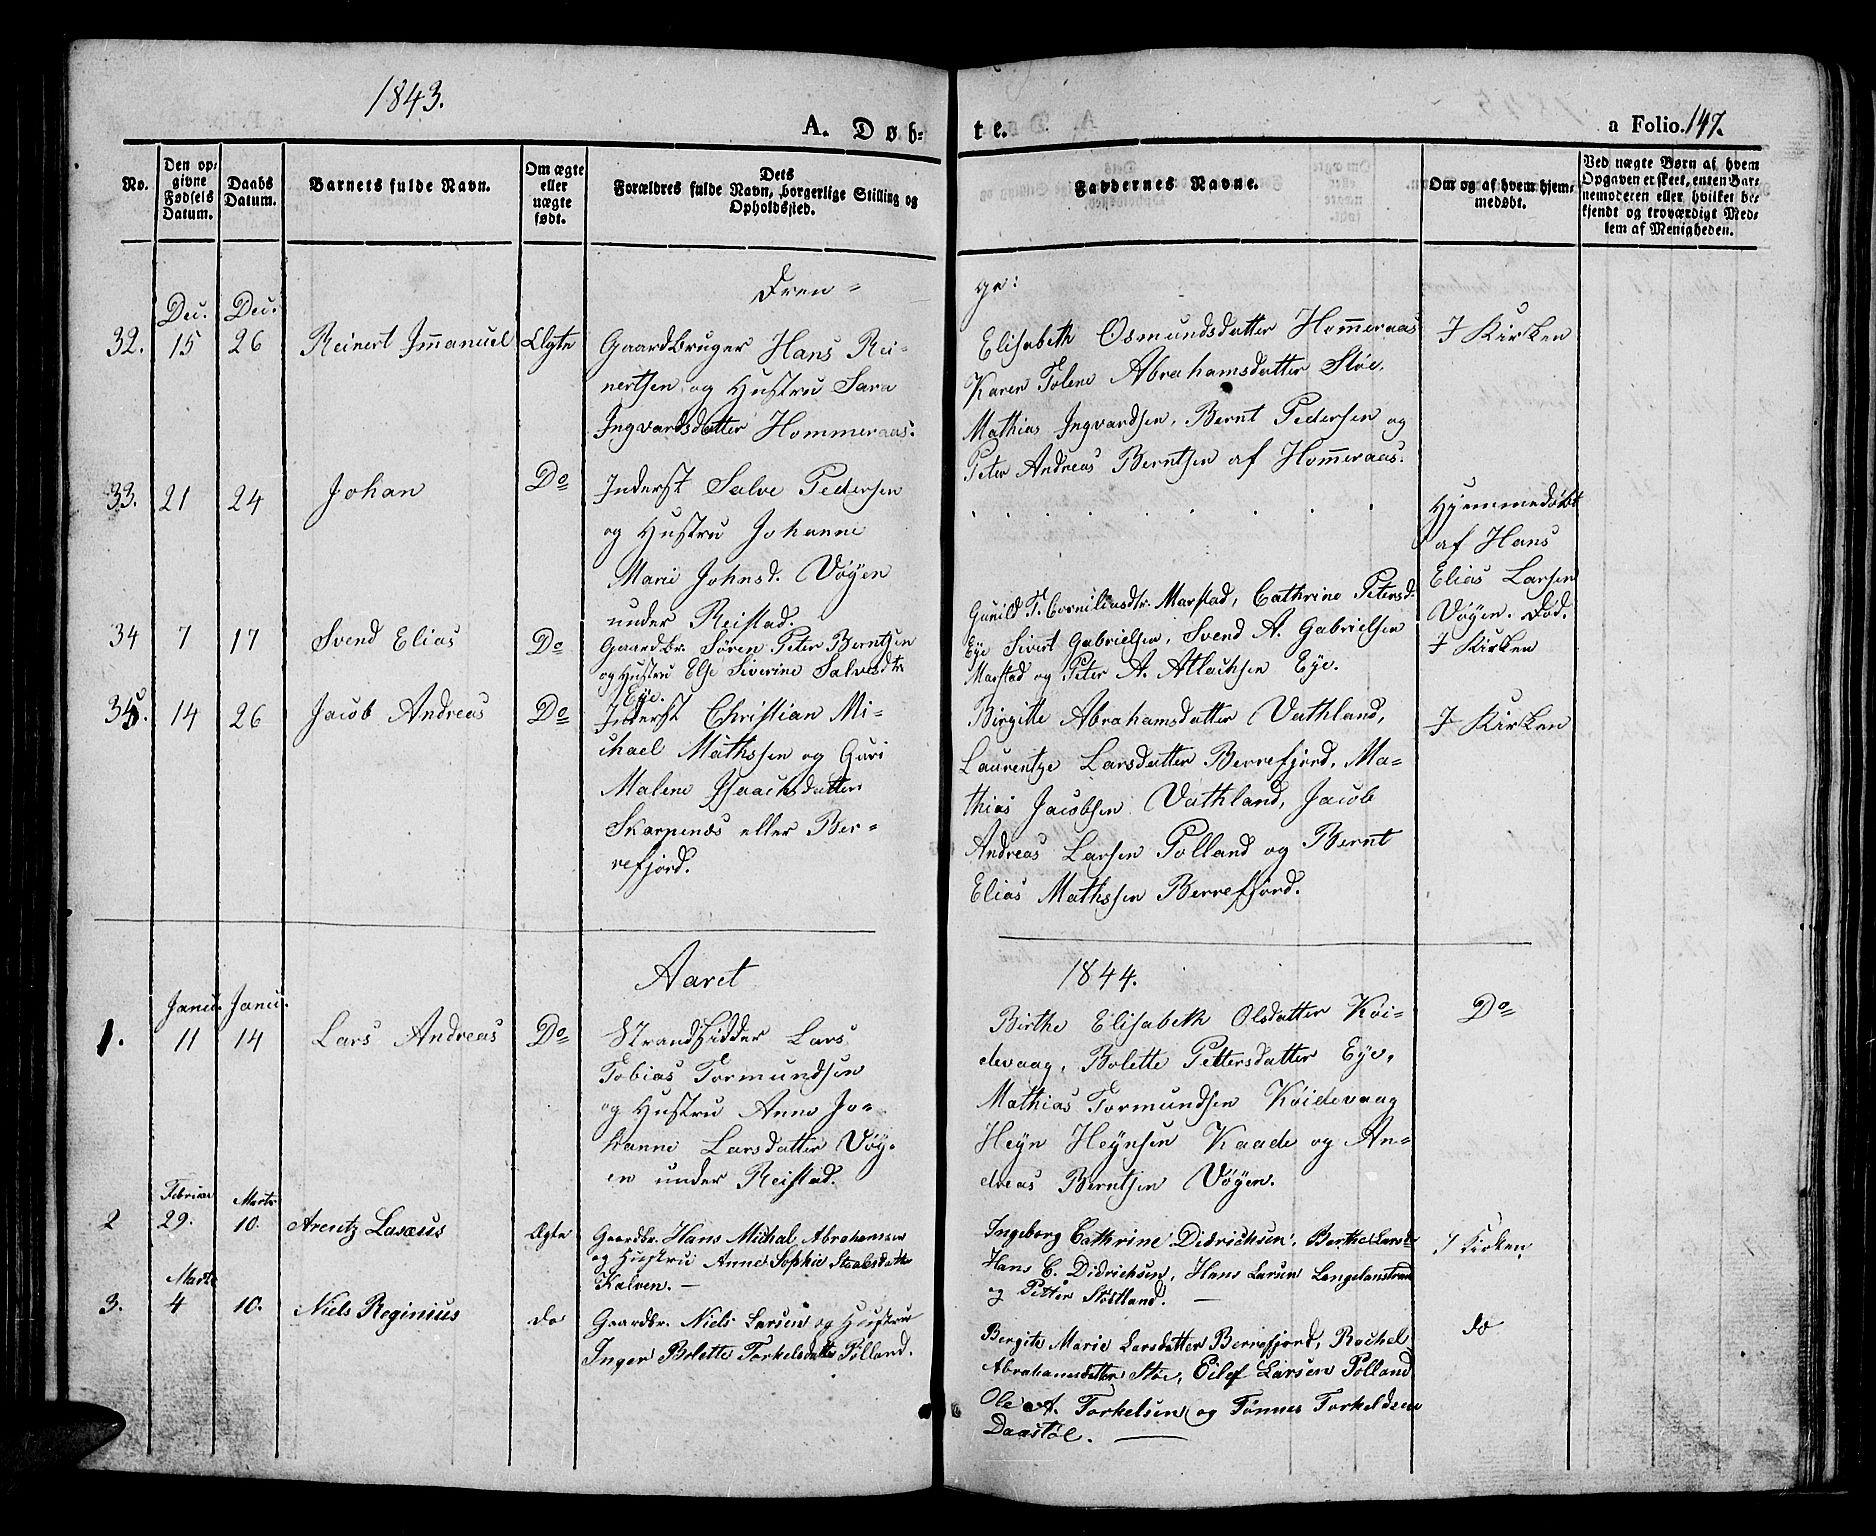 1843.
A. Døb-
te.
a Folio. 147.
No.
Den op-
givne
Fødsels
Datum.
Daabs
Datum.
Barnets fulde Navn.
Om ægte
eller
uægte
født.
Dets
Forældres fulde Navn, borgerlige Stilling og
Opholdssted.
Faddernes Navne.
Om og af hvem hjem-
medøbt.
Ved uægte Børn af hvem
Opgaven er skeet, enten Bar-
nemoderen eller hvilket be-
kjendt og troværdigt Med-
lem af Menigheden.
Dren-
ge:
Dec. Dec.
32. 15 26 Reinert Immanuel Ægte
Gaardbruger Hans Rei-
nertsen og Hustru Sara
Ingvardsdatter Hommeraas.
Elisabeth Osmundsdatter Hommeraas
Karen Tolene Abrahamsdatter Støe,
Mathias Ingvardsen, Bernt Pedersen og
Peter Andreas Berntsen af Hommeraas.
I Kirken
33. 21 24 Johan Do
Inderst Salve Pedersen
og Hustru Johanne
Marie Johnsd. Vøyen
under Reistad.
. . . . . . . .
Hjemmedøbt
af Hans
Elias Larsen
Vøyen. Død.
34 7 17 Svend Elias Do
Gaardbr. Søren Peter Berntsen
og Hustru Else Siverine Salvesdtr
Eye.
Gunild T. Corneliasdtr. Marstad, Cathrine Petersd.
Eye Sivert Gabrielsen, Svend A. Gabrielsen
Marstad og Peter A. Atlachsen Eye.
I Kirken
35. 14 26 Jacob Andreas Do
Inderst Christian Mi-
chael Mathssen og Guri
Malene Isaachsdatter
Skarpenæs eller Ber-
refjord.
Birgitte Abrahamsdatter Vathland,
Laurentze Larsdatter Berrefjord, Ma-
thias Jacobsen Vathland, Jacob
Andreas Larsen Polland og Bernt
Elias Mathssen Berrefjord.
I Kirken
Aaret
1844.
Janu. Janu.
1. 11 14 Lars Andreas Do
Strandsidder Lars
Tobias Tormundsen
og Hustru Anne Jo-
hanne Larsdatter Vøy-
en under Reistad.
Birthe Elisabeth Olsdatter Køi-
devaag, Bolette Pettersdatter Eye,
Mathias Tormundsen Køidevaag
Heyn Heynsen Kaade og An-
dreas Berntsen Vøyen.
Do
Februar Marts
2 29. 10. Arentz Lasæus Ægte
Gaardbr. Hans Michal Abrahamsen
og Hustru Anne Sophie Staalesdatter
Kalven. —
Ingeborg Cathrine Didrichsen, Berthe Larsd.
Hans C. Didrichsen, Hans Larsen
og Petter Støtland. —
I Kirken
Marts
3. 4 10. Niels Reginius do
Gaardbr. Niels Larsen og Hustru
Inger Bolette Torkelsdatter Polland.
Bergite Marie Larsdatter Berrefjord, Rachel
Abrahamsdatter Støe, Eilef Larsen Polland
Ole A. Torkelsen og Tønnes Torkeldsen
Daastøl. —
do